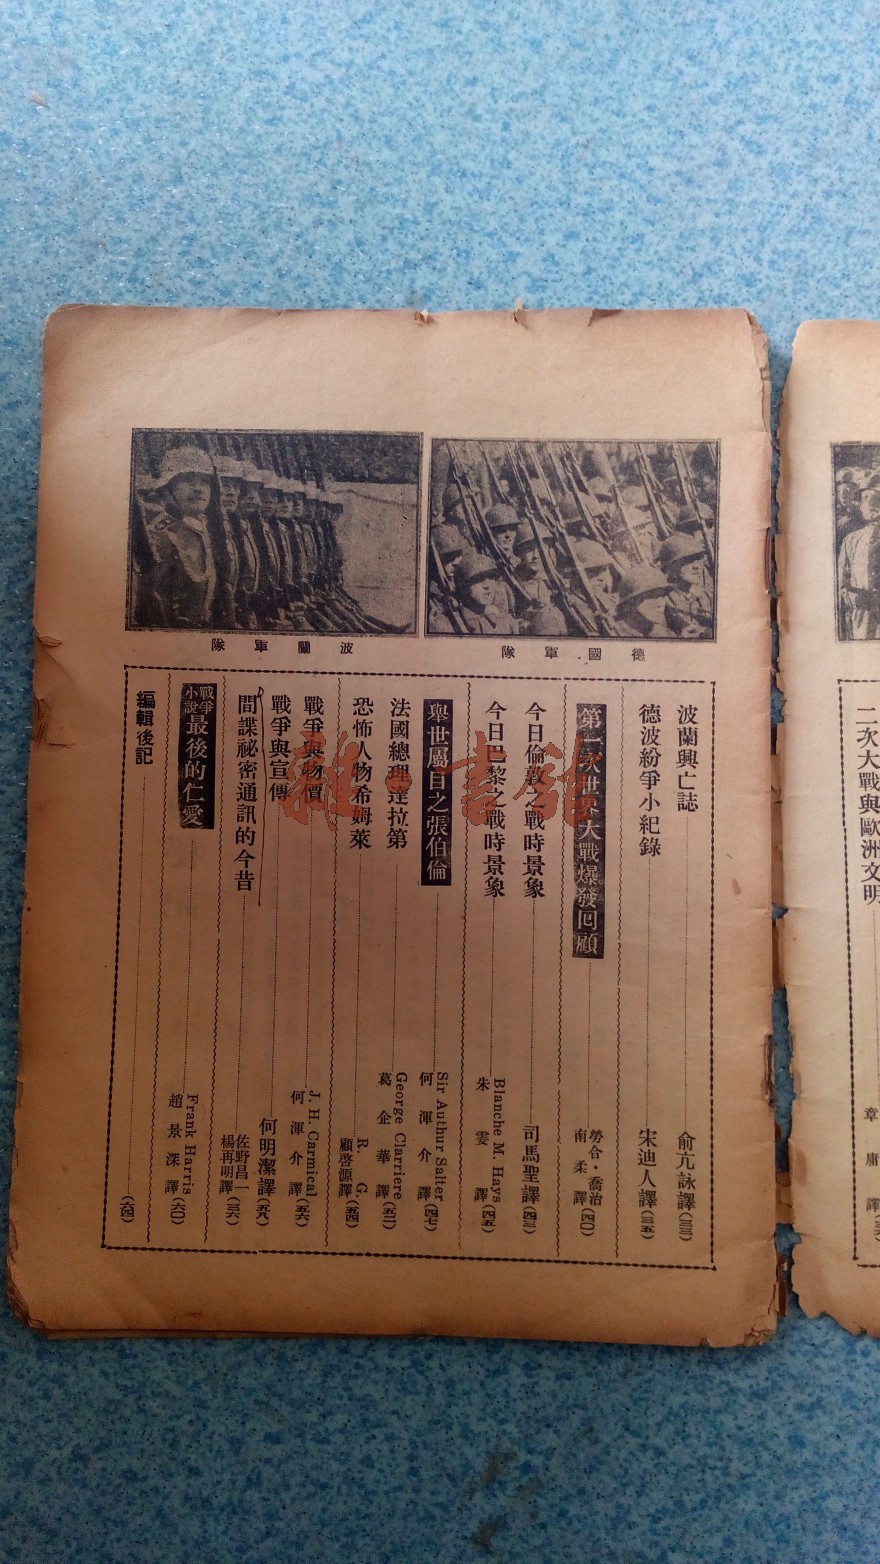 德國軍隊
波蘭軍隊
二次大戰與歐洲文明
章庸譯
波蘭興亡誌
俞亢詠譯(三三)
德波紛爭小紀錄
宋迪人譯(三五)
第二次世界大戰爆發回顧
勞合·喬治
南柔譯(四〇)
今日倫敦之戰時景象
司馬聖譯(四三)
今日巴黎之戰時景象
Blanche M. Hays
朱雯譯(四五)
舉世屬目之張伯倫
Sir Authur Salter
何渾介譯(四七)
法國總理達拉第
George Clarriere
葛企華譯(五二)
恐怖人物希姆萊
R. G.
顧啓源譯(五四)
戰爭與物價
J. H. Carmical
何渾介譯(五六)
戰爭與宣傳
何明潔譯(五八)
間諜祕密通訊的今昔
佐野昌一
楊再明譯
戰爭小說
最後的仁愛
Frank Harris
趙景深譯(六〇)
編輯後記
(六四)
雜·書館